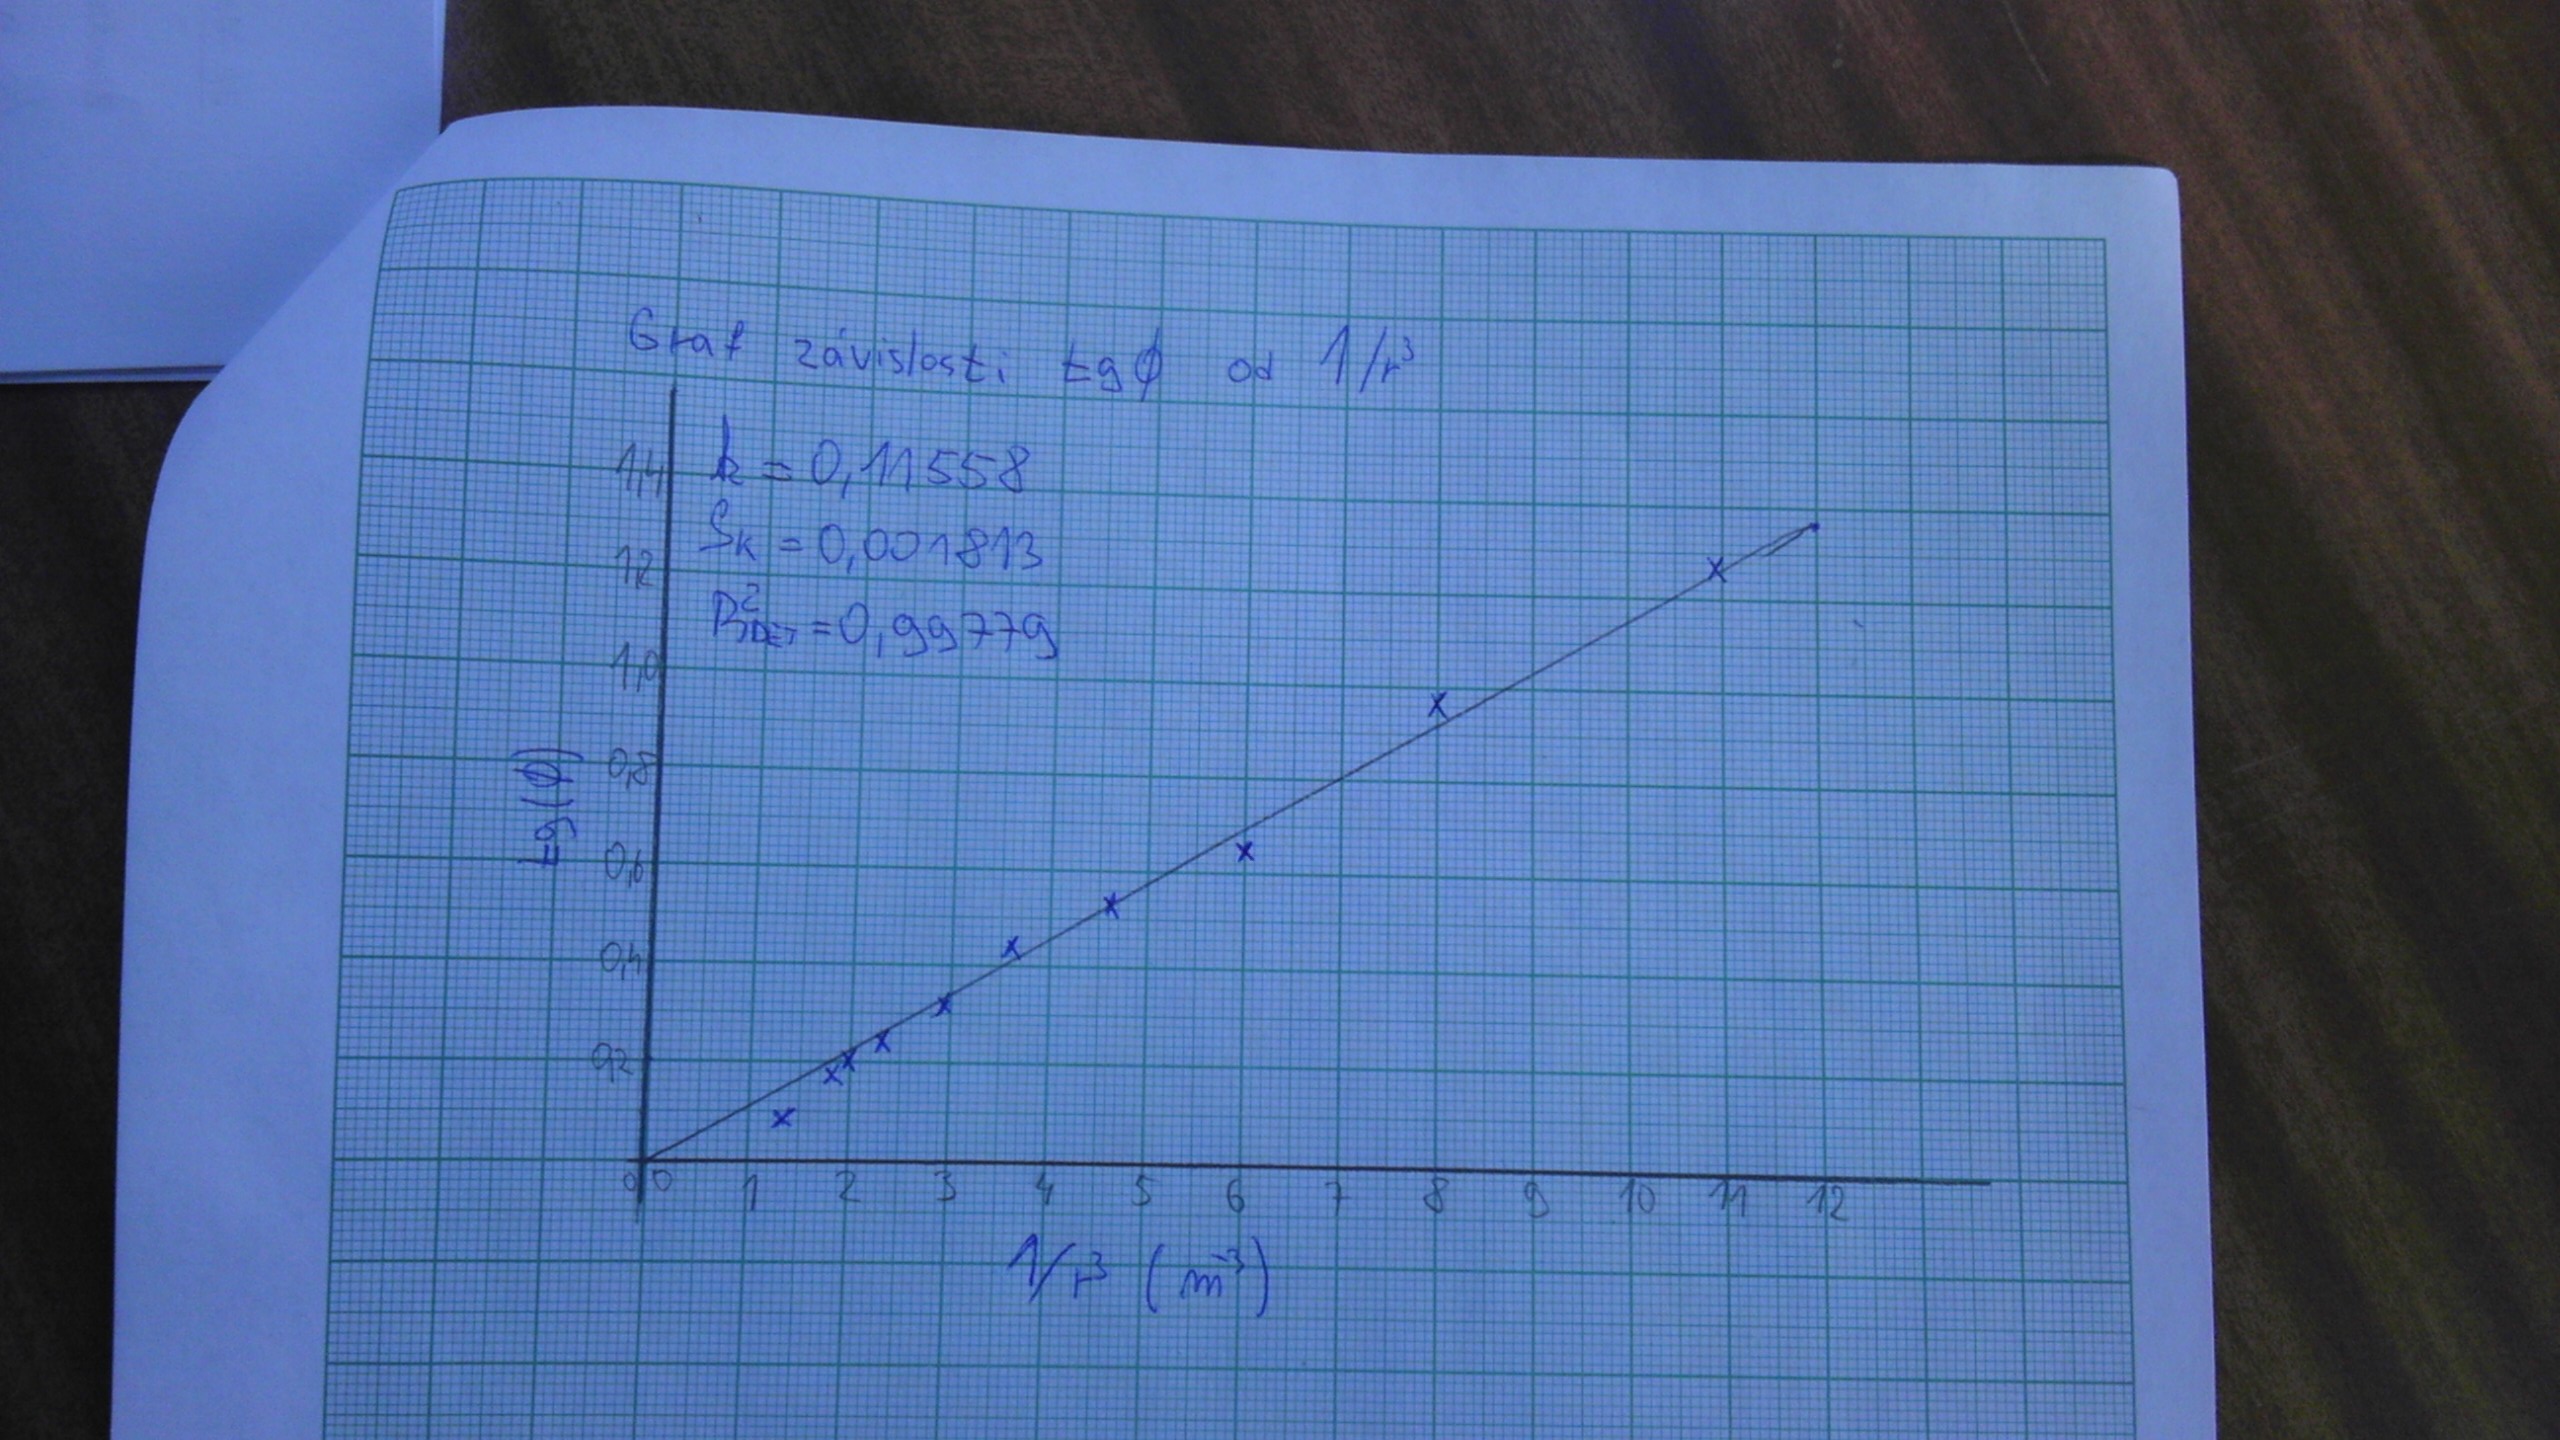 Graf závislosti tgϕ od 1/r³
k = 0,11558
Sk = 0,001813
R²DET = 0,99779
1,4
1,2
1,0
0,8
0,6
0,4
0,2
tg(ϕ)
0 0 1 2 3 4 5 6 7 8 9 10 11 12
1/r³ (m⁻³)